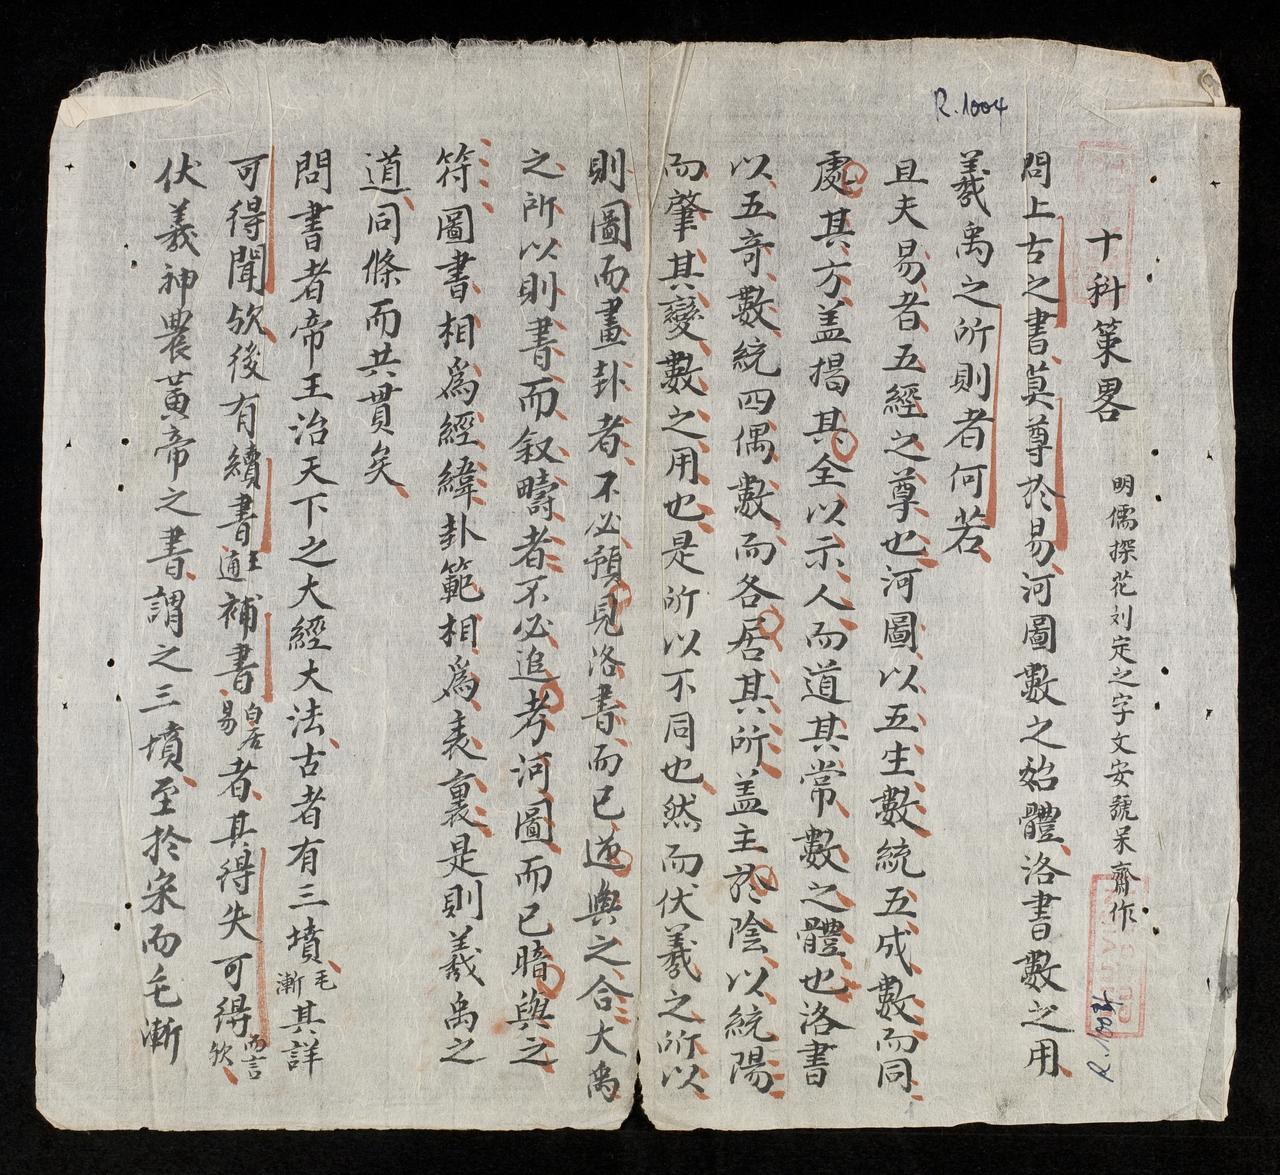 R.1004
十科策畧 明儒探花刘定之字文安號呆齋作
R.1004
問上古之書莫尊於易河圖數之始體洛書數之用
羲禹之所則者何若
且夫易者五經之尊也河圖以五生數統五成數而同
處其方盖揭其全以示人而道其常數之體也洛書
以五奇數統四偶數而各居其所盖主於陰以統陽
而肇其變數之用也是所以不同也然而伏羲之所以
則圖而畫卦者不必預見洛書而已逆與之合大禹
之所以則書而叙疇者不必追考河圖而已暗與之
符圖書相爲經緯卦範相爲表裏是則羲禹之
道同條而共貫矣
問書者帝王治天下之大經大法古者有三墳毛漸其詳
可得聞欤後有續書王通補書白居易者其得失可得而言欤
伏羲神農黃帝之書謂之三墳至於宋而毛漸